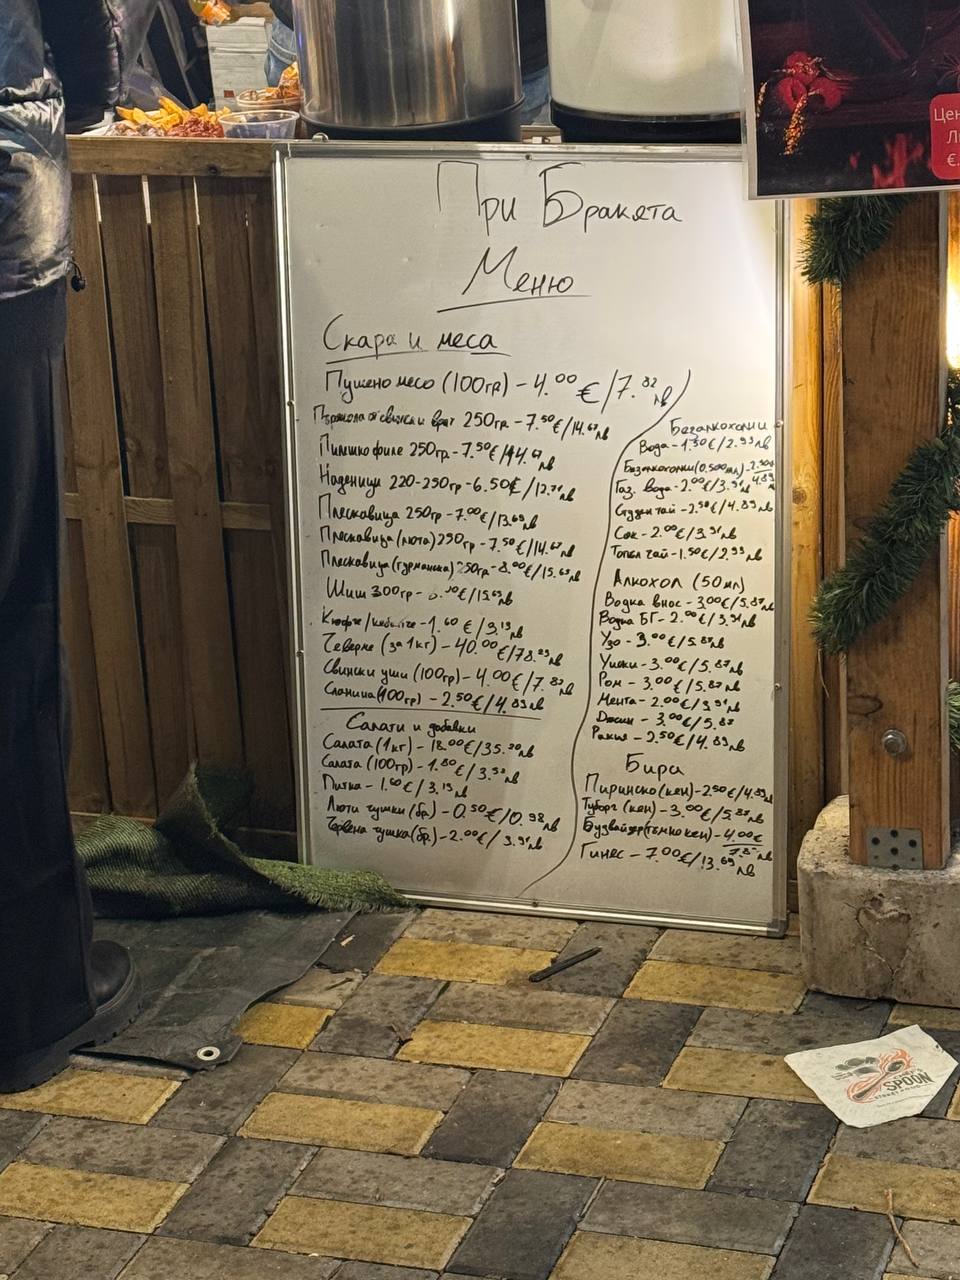 При Бракята
Меню
Скара и меса
Пушено месо (100гр) - 4.00 €/7.82 лв
Пържола от свински врат 250гр - 7.50€/14.67лв
Пилешко филе 250гр - 7.50€/14.67 лв
Наденици 220-250гр - 6.50€/12.71 лв
Плескавица 250гр - 7.00€/13.69лв
Плескавица (люта) 250гр - 7.50€/14.67лв
Плескавица (гурманска) 250гр - 8.00€/15.65лв
Шиш 300гр - €/15.65лв
Кюфте/кебапче - 1.60 €/3.13лв
Чеверме (за 1кг) - 40.00 €/78.23лв
Свински уши (100гр) - 4.00€/7.82 лв
Сланина (100гр) - 2.50€/4.89лв
Салати и добавки
Салата (1кг) - 18.00€/35.20лв
Салата (100гр) - 1.80€/3.52лв
Питка - 1.60€/3.13лв
Люти чушки (бр.) - 0.50€/0.98лв
Червена чушка (бр.) - 2.00€/3.91лв
Безалкохолни
Вода - 1.50€/2.93лв
Безалкохолни (0.500мл) - 2.50€
4.89
Газ. вода - 2.00€/3.91лв
Студен чай - 2.50€/4.89лв
Сок - 2.00€/3.91лв
Топъл чай - 1.50€/2.93лв
Алкохол (50мл)
Водка внос - 3.00€/5.87лв
Водка БГ - 2.00€/3.91лв
Узо - 3.00€/5.87лв
Уиски - 3.00€/5.87лв
Ром - 3.00€/5.87лв
Мента - 2.00€/3.91лв
Джин - 3.00€/5.87
Ракия - 2.50€/4.89лв
Бира
Пиринско (кен) - 2.50€/4.89лв
Туборг (кен) - 3.00€/5.87лв
Будвайзер (тъмно кен) - 4.00€
7.82лв
Гинес - 7.00€/13.69лв
Цен
Л
€
SPOON